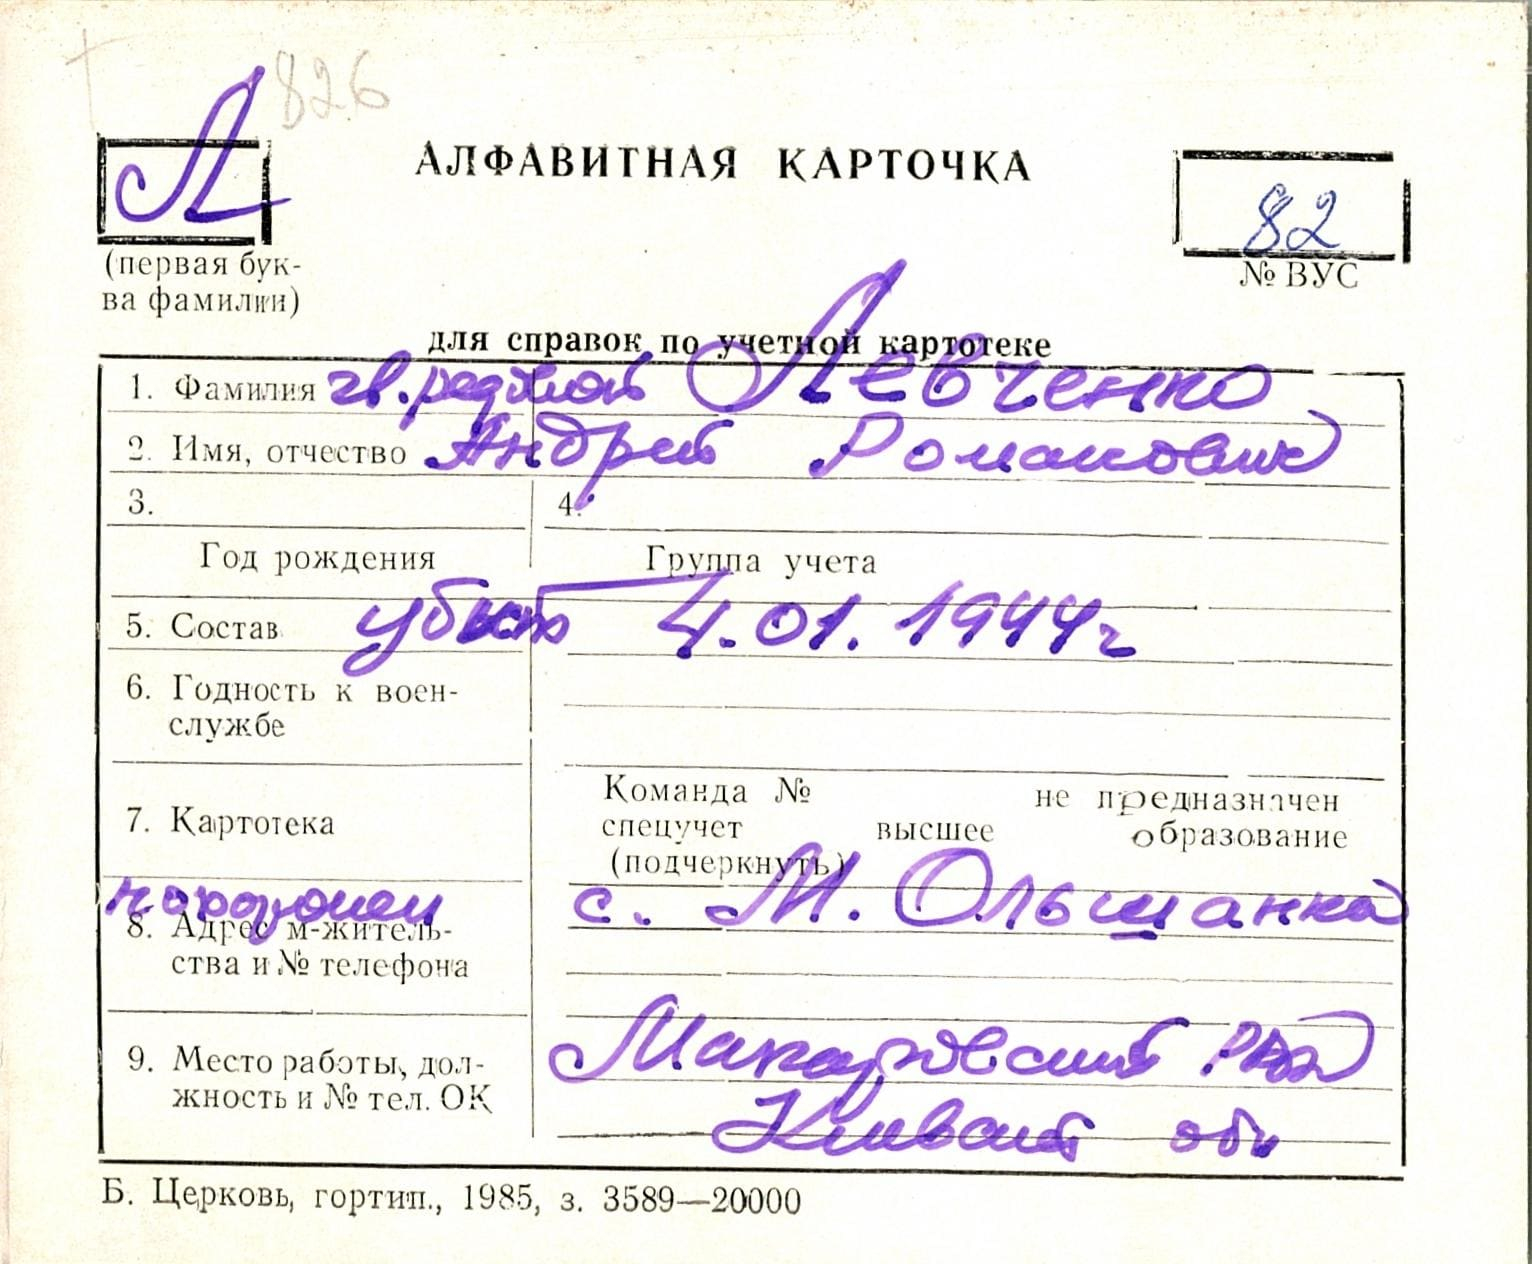 826
Л
АЛФАВИТНАЯ КАРТОЧКА
82
(первая бук-
ва фамилии)
№ ВУС
для справок по учетной картотеке
1. Фамилия гв. рядовой Левченко
2. Имя, отчество Андрей Романович
3. 4.
Год рождения Группа учета
5. Состав убит 4.01.1944г
6. Годность к воен-
службе
7. Картотека
Команда № не предназначен
спецучет высшее образование
(подчеркнуть)
похоронен с. М. Ольшанка
8. Адрес м-житель-
ства и № телефона
9. Место работы, дол-
жность и № тел. ОК
Макаровский
Киевской обл
Б. Церковь, гортип., 1985, з. 3589—20000